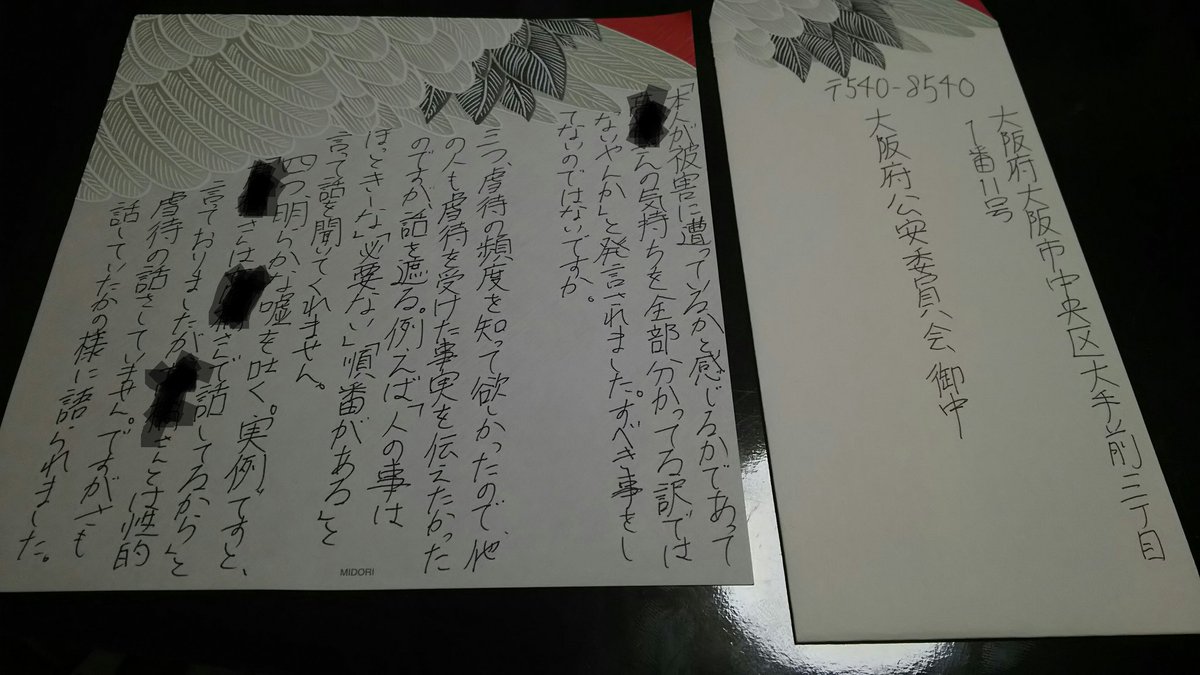 「本人が被害に遭っているかと感じるかであって
さんの気持ちを全部分かってる訳では
ないやんか」と発言されました。すべき事をし
てないのではないですか。
三つ、虐待の頻度を知って欲しかったので、他
の人も虐待を受けた事実を伝えたかった
のですが、話を遮る。例えば「人の事は
ほっときーな」「必要ない」「順番がある」と
言って話を聞いてくれません。
四つ、明らかな嘘を吐く。実例ですと、
「さんはさんで話してるから」と
言ておりましたが、さんとは性的
虐待の話さしていません。ですが、さも
話していたかの様に語られました。
MIDORI
〒540-8540
大阪府大阪市中央区大手前三丁目
1番11号
大阪府公安委員会 御中